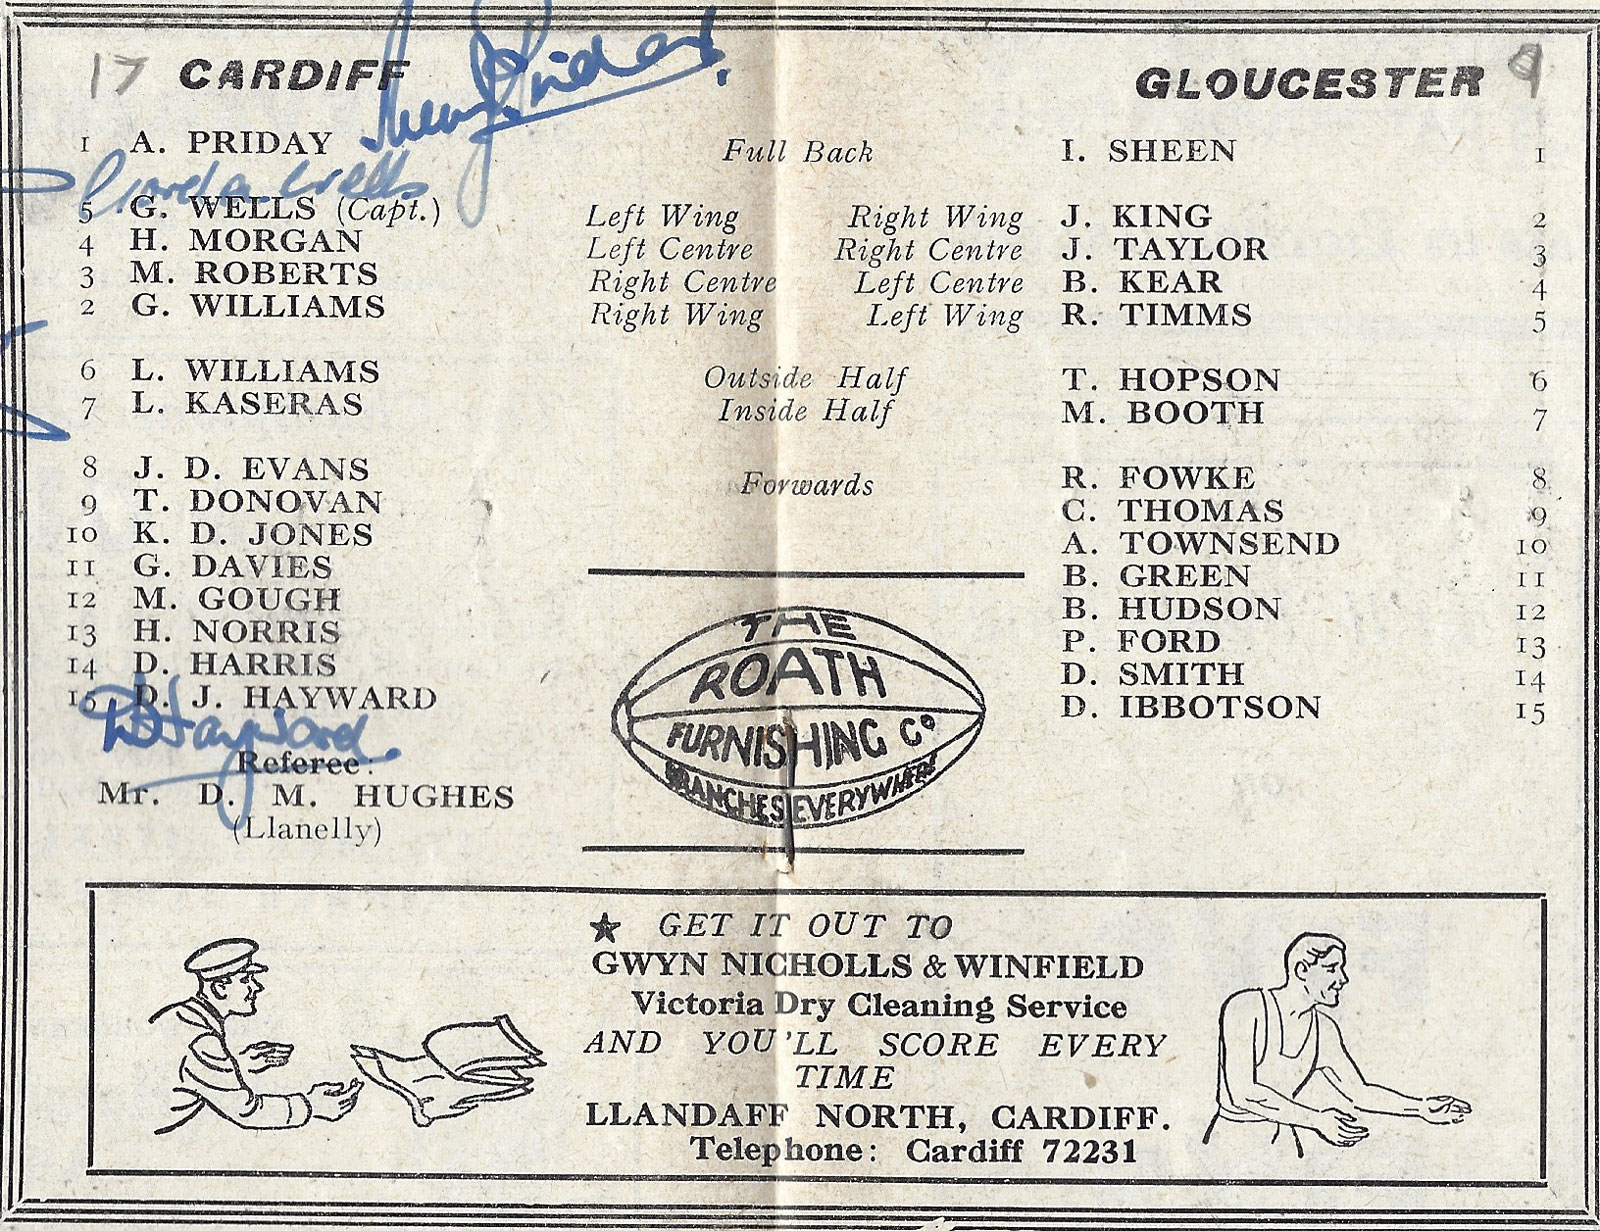 17 CARDIFF
GLOUCESTER 9
1 A. PRIDAY Full Back I. SHEEN 1
Gordon Wells
5 G. WELLS (Capt.) Left Wing Right Wing J. KING 2
4 H. MORGAN Left Centre Right Centre J. TAYLOR 3
3 M. ROBERTS Right Centre Left Centre B. KEAR 4
2 G. WILLIAMS Right Wing Left Wing R. TIMMS 5
6 L. WILLIAMS Outside Half T. HOPSON 6
7 L. KASERAS Inside Half M. BOOTH 7
8 J. D. EVANS Forwards R. FOWKE 8
9 T. DONOVAN C. THOMAS 9
10 K. D. JONES A. TOWNSEND 10
11 G. DAVIES B. GREEN 11
12 M. GOUGH B. HUDSON 12
13 H. NORRIS P. FORD 13
14 D. HARRIS D. SMITH 14
15 D. J. HAYWARD D. IBBOTSON 15
DHayward
Referee:
Mr. D. M. HUGHES
(Llanelly)
THE
ROATH
FURNISHING Co
BRANCHES EVERYWHERE
★ GET IT OUT TO
GWYN NICHOLLS & WINFIELD
Victoria Dry Cleaning Service
AND YOU'LL SCORE EVERY
TIME
LLANDAFF NORTH, CARDIFF.
Telephone: Cardiff 72231